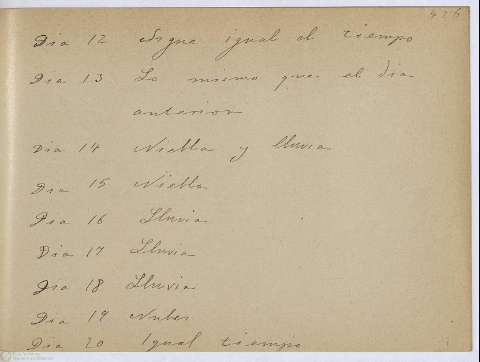 Dia 12 Sigue igual el tiempo
Dia 13 Lo mismo que el dia
anterior
Dia 14 Niebla y lluvia
Dia 15 Niebla
Dia 16 Lluvia
Dia 17 Lluvia
Dia 18 Lluvia
Dia 19 Nubes
Dia 20 Igual tiempo